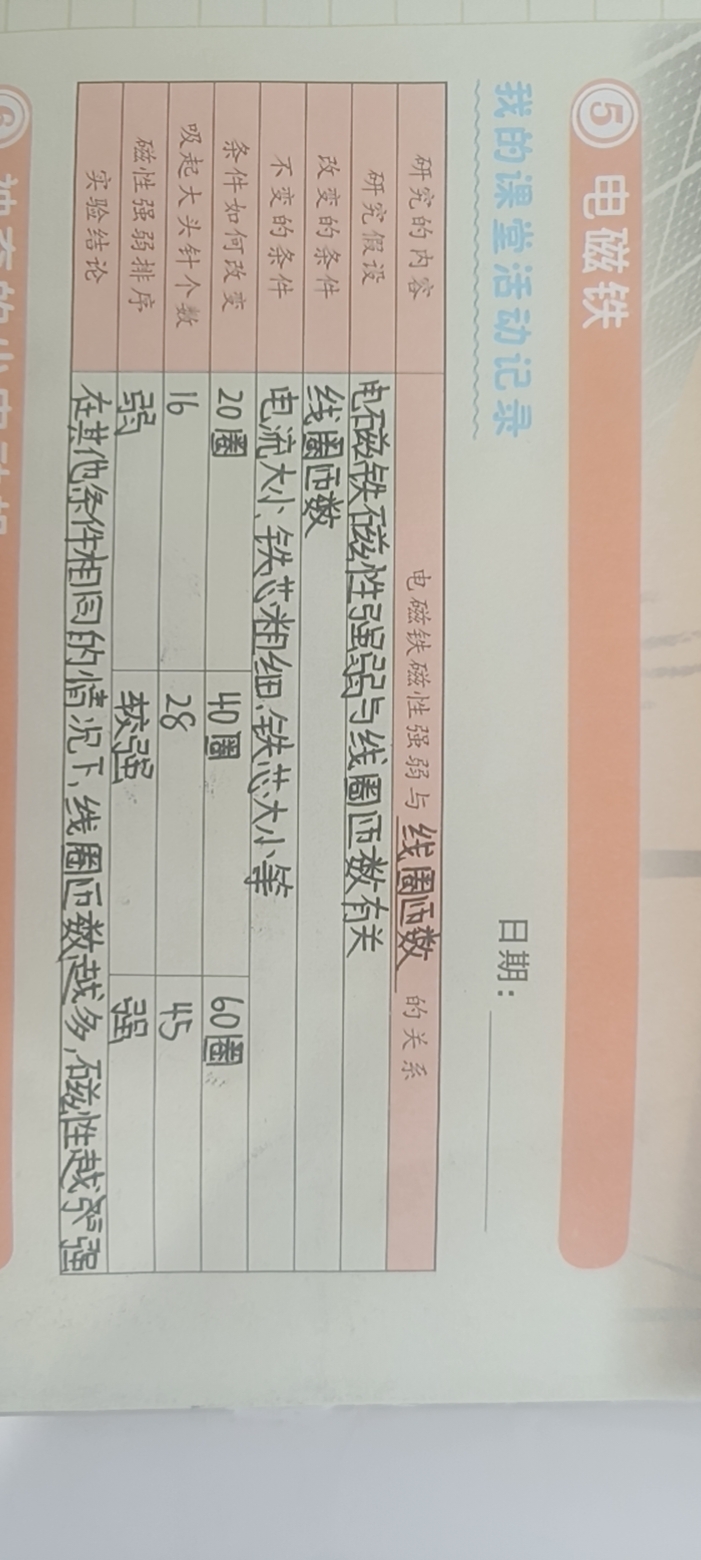 5 电磁铁
我的课堂活动记录
日期：
研究的内容 电磁铁磁性强弱与 线圈匝数 的关系
研究假设 电磁铁磁性强弱与线圈匝数有关
改变的条件 线圈匝数
不变的条件 电流大小、铁芯粗细、铁芯大小等
条件如何改变 20圈 40圈 60圈
吸起大头针个数 16 28 45
磁性强弱排序 弱 较强 强
实验结论 在其他条件相同的情况下，线圈匝数越多，磁性越强
6 神奇的小电动机